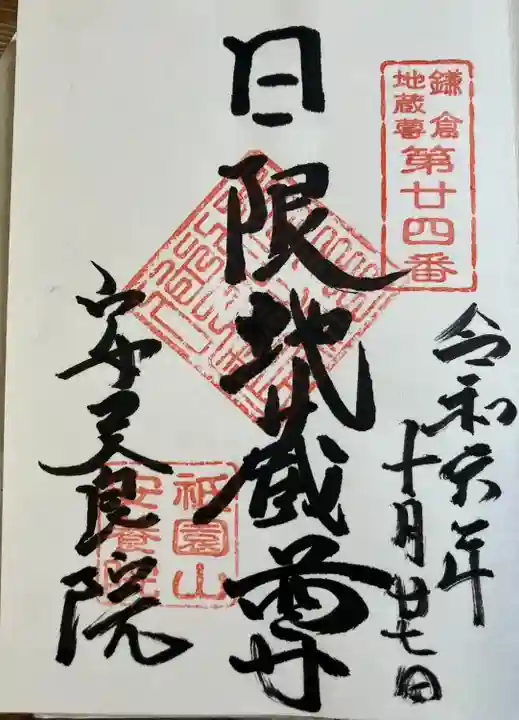 鎌倉
地蔵尊
第廿四番
令和六年
十月廿七日
日限地蔵尊
安養院
祇園山
安養院